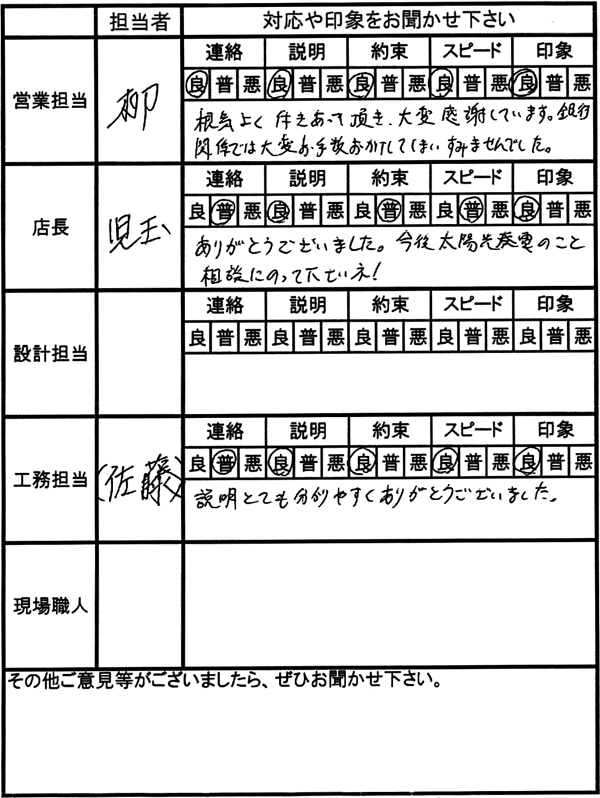 担当者 対応や印象をお聞かせ下さい
営業担当 柳 連絡 説明 約束 スピード 印象
良 普 悪 良 普 悪 良 普 悪 良 普 悪 良 普 悪
根気よく付きあって頂き、大変感謝しています。銀行
関係では大変お手数おかけしてしまいすみませんでした。
店長 児玉 連絡 説明 約束 スピード 印象
良 普 悪 良 普 悪 良 普 悪 良 普 悪 良 普 悪
ありがとうございました。今後太陽光発電のこと
相談にのって下さいネ!
設計担当 連絡 説明 約束 スピード 印象
良 普 悪 良 普 悪 良 普 悪 良 普 悪 良 普 悪
工務担当 (佐藤) 連絡 説明 約束 スピード 印象
良 普 悪 良 普 悪 良 普 悪 良 普 悪 良 普 悪
説明とても分りやすくありがとうございました。
現場職人
その他ご意見等がございましたら、ぜひお聞かせ下さい。